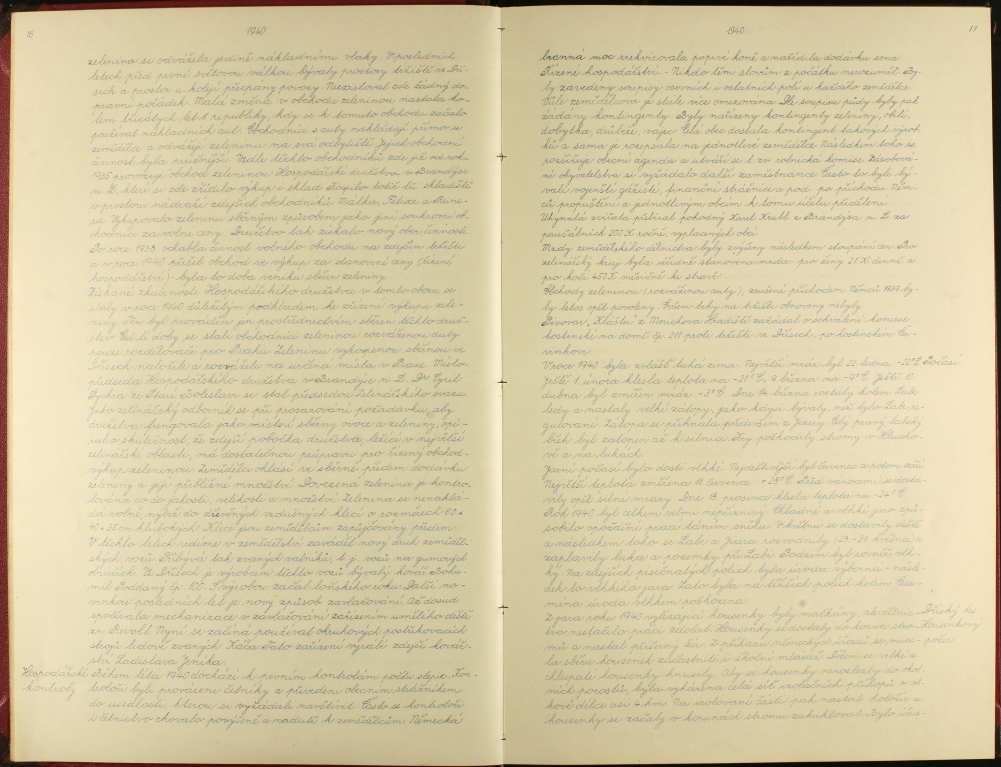 16
1940
zelenina se odvážela jedině nákladními vlaky. V posledních
letech před první světovou válkou bývaly prostory tržiště ve Dří-
sech a prostor u kolejí přecpány povozy. Neexistoval zde žádný do-
pravní pořádek. Malá změna v obchodu zeleninou nastala ko-
lem třicátých let republiky, kdy se k tomuto obchodu začalo
používat nákladních aut. Obchodníci s auty nakládají přímo u
zemědělce a odvážejí zeleninu na svá odbytiště. Jejich obchodní
činnost byla pružnější. Vedle těchto obchodníků zde již od roku
1935 provozuje obchod zeleninou Hospodářské družstvo v Brandýse
n. L., které si zde zřídilo výkup i sklad. Koupilo totiž tu skladiště
v prostoru nádraží zdejších obchodníků Málka, Felixe a
Vykupovalo zeleninu sběrným způsobem jako jiní soukromí ob-
chodníci za volné ceny. Družstvo tak získalo nový obor činnosti.
Po roce 1938 ochabla činnost volného obchodu na zdejším tržišti
a v roce 1940 přešel obchod ve výkup za stanovené ceny (řízené
hospodářství) - byla to doba vzniku sběren zeleniny.
Získané zkušenosti Hospodářského družstva v tomto oboru se
staly v roce 1940 důležitým podkladem ke zřízení výkupu zele-
niny. Ten byl prováděn jen prostřednictvím sběren těchto druž-
stev. Od té doby se stali obchodníci zeleninou rozváženou auty
pouze rozdělovači pro Prahu. Zeleninu vykoupenou sběrnou ve
Dřísech naložili a rozváželi na určená místa v Praze. Místo-
předseda Hospodářského družstva v Brandýse n. L. Dr Cyril
Sychra ze Staré Boleslavi se stal předsedou Zelinářského svazu.
Jako zelinářský odborník se při prosazování požadavku, aby
družstva fungovala jako místní sběrny ovoce a zeleniny, opí-
ral o skutečnost, že zdejší pobočka družstva, ležící v největší
zelinářské oblasti, má dostatečnou průpravu pro řízený obchod -
výkup zeleninou. Zemědělec ohlásí ve sběrně předem dodávku
zeleniny a její přibližné množství. Dovezená zelenina je kontro-
lována co do jakosti, velikosti a množství. Zelenina se nenaklá-
dá volně, nýbrž do dřevěných vzdušných klecí o rozměrech 60 x
40 x 25 cm hlubokých. Klece jsou zemědělcům zapůjčovány předem.
V těchto letech vidíme v zemědělství zavádět nový druh zeměděl-
ských vozů. Přibývá tak zvaných valníků, t. j. vozů na gumových
obručích. Ve Dřísech je výrobcem těchto vozů bývalý kovář Bohu-
mil Poddaný čp. 60. S výrobou začal loňského roku. Další no-
vinkou posledních let je nový způsob zavlažování. Až dosud
spočívala mechanizace v zavlažování zařízením umělého deště
zn. Nyní se začíná používat okružových postřikovacích
strojů lidově zvaných Káča. Toto zařízení vyrábí zdejší kovář-
ství Ladislava Jeníka.
Hospodářské
kontroly
Během léta 1940 dochází k prvním kontrolám počtu slepic. Kon-
troloři byli provázeni četníky a přivedeni obecním strážníkem
do usedlosti, kterou si vyžádali navštívit. Často se kontroloři
i četnictvo chovalo povýšeně a nadutě k zemědělcům. Německá
1940
17
branná moc zrekvírovala poprvé koně a nařídila dodávku sena.
Řízené hospodářství. - Nikdo těm slovům z počátku nerozuměl. By-
ly zavedeny soupisy osevních a ostatních polí u každého zemědělce.
Vůle zemědělcova je stále více omezována. Dle soupisu půdy byly pak
žádány kontingenty. Byly nařízeny kontingenty zeleniny, obilí,
dobytka, drůbeže, vajec. Celá obec dostala kontingent takových výrob-
ků a sama je rozepsala na jednotlivé zemědělce. Následkem toho se
rozšiřuje obecní agenda a utváří se t. zv. rolnická komise. Zásobová-
ní obyvatelstva si vyžádalo další zaměstnance. Často to byli bý-
valí vojenští gážisté, finanční strážníci a pod. po příchodu Něm-
ců propuštění a jednotlivým obcím k tomu účelu přidělení.
Uhynulá zvířata přibíral pohodný Karel Krubl z Brandýsa n. L. za
paušálních 200 K ročně, vyplacených obcí.
Mzdy zemědělského dělnictva byly zvýšeny následkem stoupání cen. Pro
zelinářský kraj byla úředně stanovena mzda - pro ženy 21 K denně a
pro hochy 450 K měsíčně ke stravě.
Obchody zeleninou (rozváženou auty), zrušené příchodem Němců 1939 by-
ly letos opět povoleny. Ovšem trhy na tržišti obnoveny nebyly.
Pivovar „Klášter" z Mnichova Hradiště zažádal o schválení koncese
hostinské na domě čp. 211 proti tržišti ve Dřísech, po hostinském Če-
venkovi.
Počasí
V roce 1940 byla zvlášť tuhá zima. Největší mráz byl 22. ledna -22° C.
Ještě 1. února klesla teplota na -21° C, 9. března na -9° C. Ještě 6.
dubna byl změřen mráz -3° C. Dne 14. března rozsály kolem Labe
ledy a nastaly velké zátopy, jako kdysi bývaly, než bylo Labe re-
gulované. Zátopa se přihnala především z Jizery. Celý pravý labský
břeh byl zatopen až k silnici. Kry poškodily stromy v Hlucho-
vě a na lukách.
Jarní počasí bylo dosti vlhké. Nejdeštivější byl červenec a potom září.
Největší teplota změřena 11. července +28° C. Před vánocemi se dosta-
vily opět silné mrazy. Dne 18. prosince klesla teplota na -24° C.
Rok 1940 byl celkem velmi nepříznivý. Chladné a vlhké jaro způ-
sobilo opoždění prací táním sněhu. V květnu se dostavily deště
a následkem toho se Labe a Jizera rozvodnily (28.-31. května) a
zaplavily luka a pozemky při Labi. Podzim byl rovněž vlh-
ký. Na zdejších písečnatých polích byla úroda výborná - násle-
dek to vlhkého jara. Zato byla na těžších polích kolem Ča-
úroda vlhkem poškozena.
Dříský les
Housenkový
požár
Z jara roku 1940 vylézající housenky byly malátny, ale dělnic-
tvo nestačilo práci zdolat. Housenky se dostaly do korun stro-
mů a nastal příšerný žír. Z příkazu německých úřadů se muse-
la sběru housenek zúčastnit i školní mládež. Dětem se velké a
chlupaté housenky hnusily. Aby se housenky nerozlezly do okol-
ních porostů, byla vyházena celá síť izolačních příkopů v cel-
kové délce asi 4 km. Na izolované části pak nastal holožír a
housenky se začaly v korunách stromů zakuklovat. Bylo úřed-